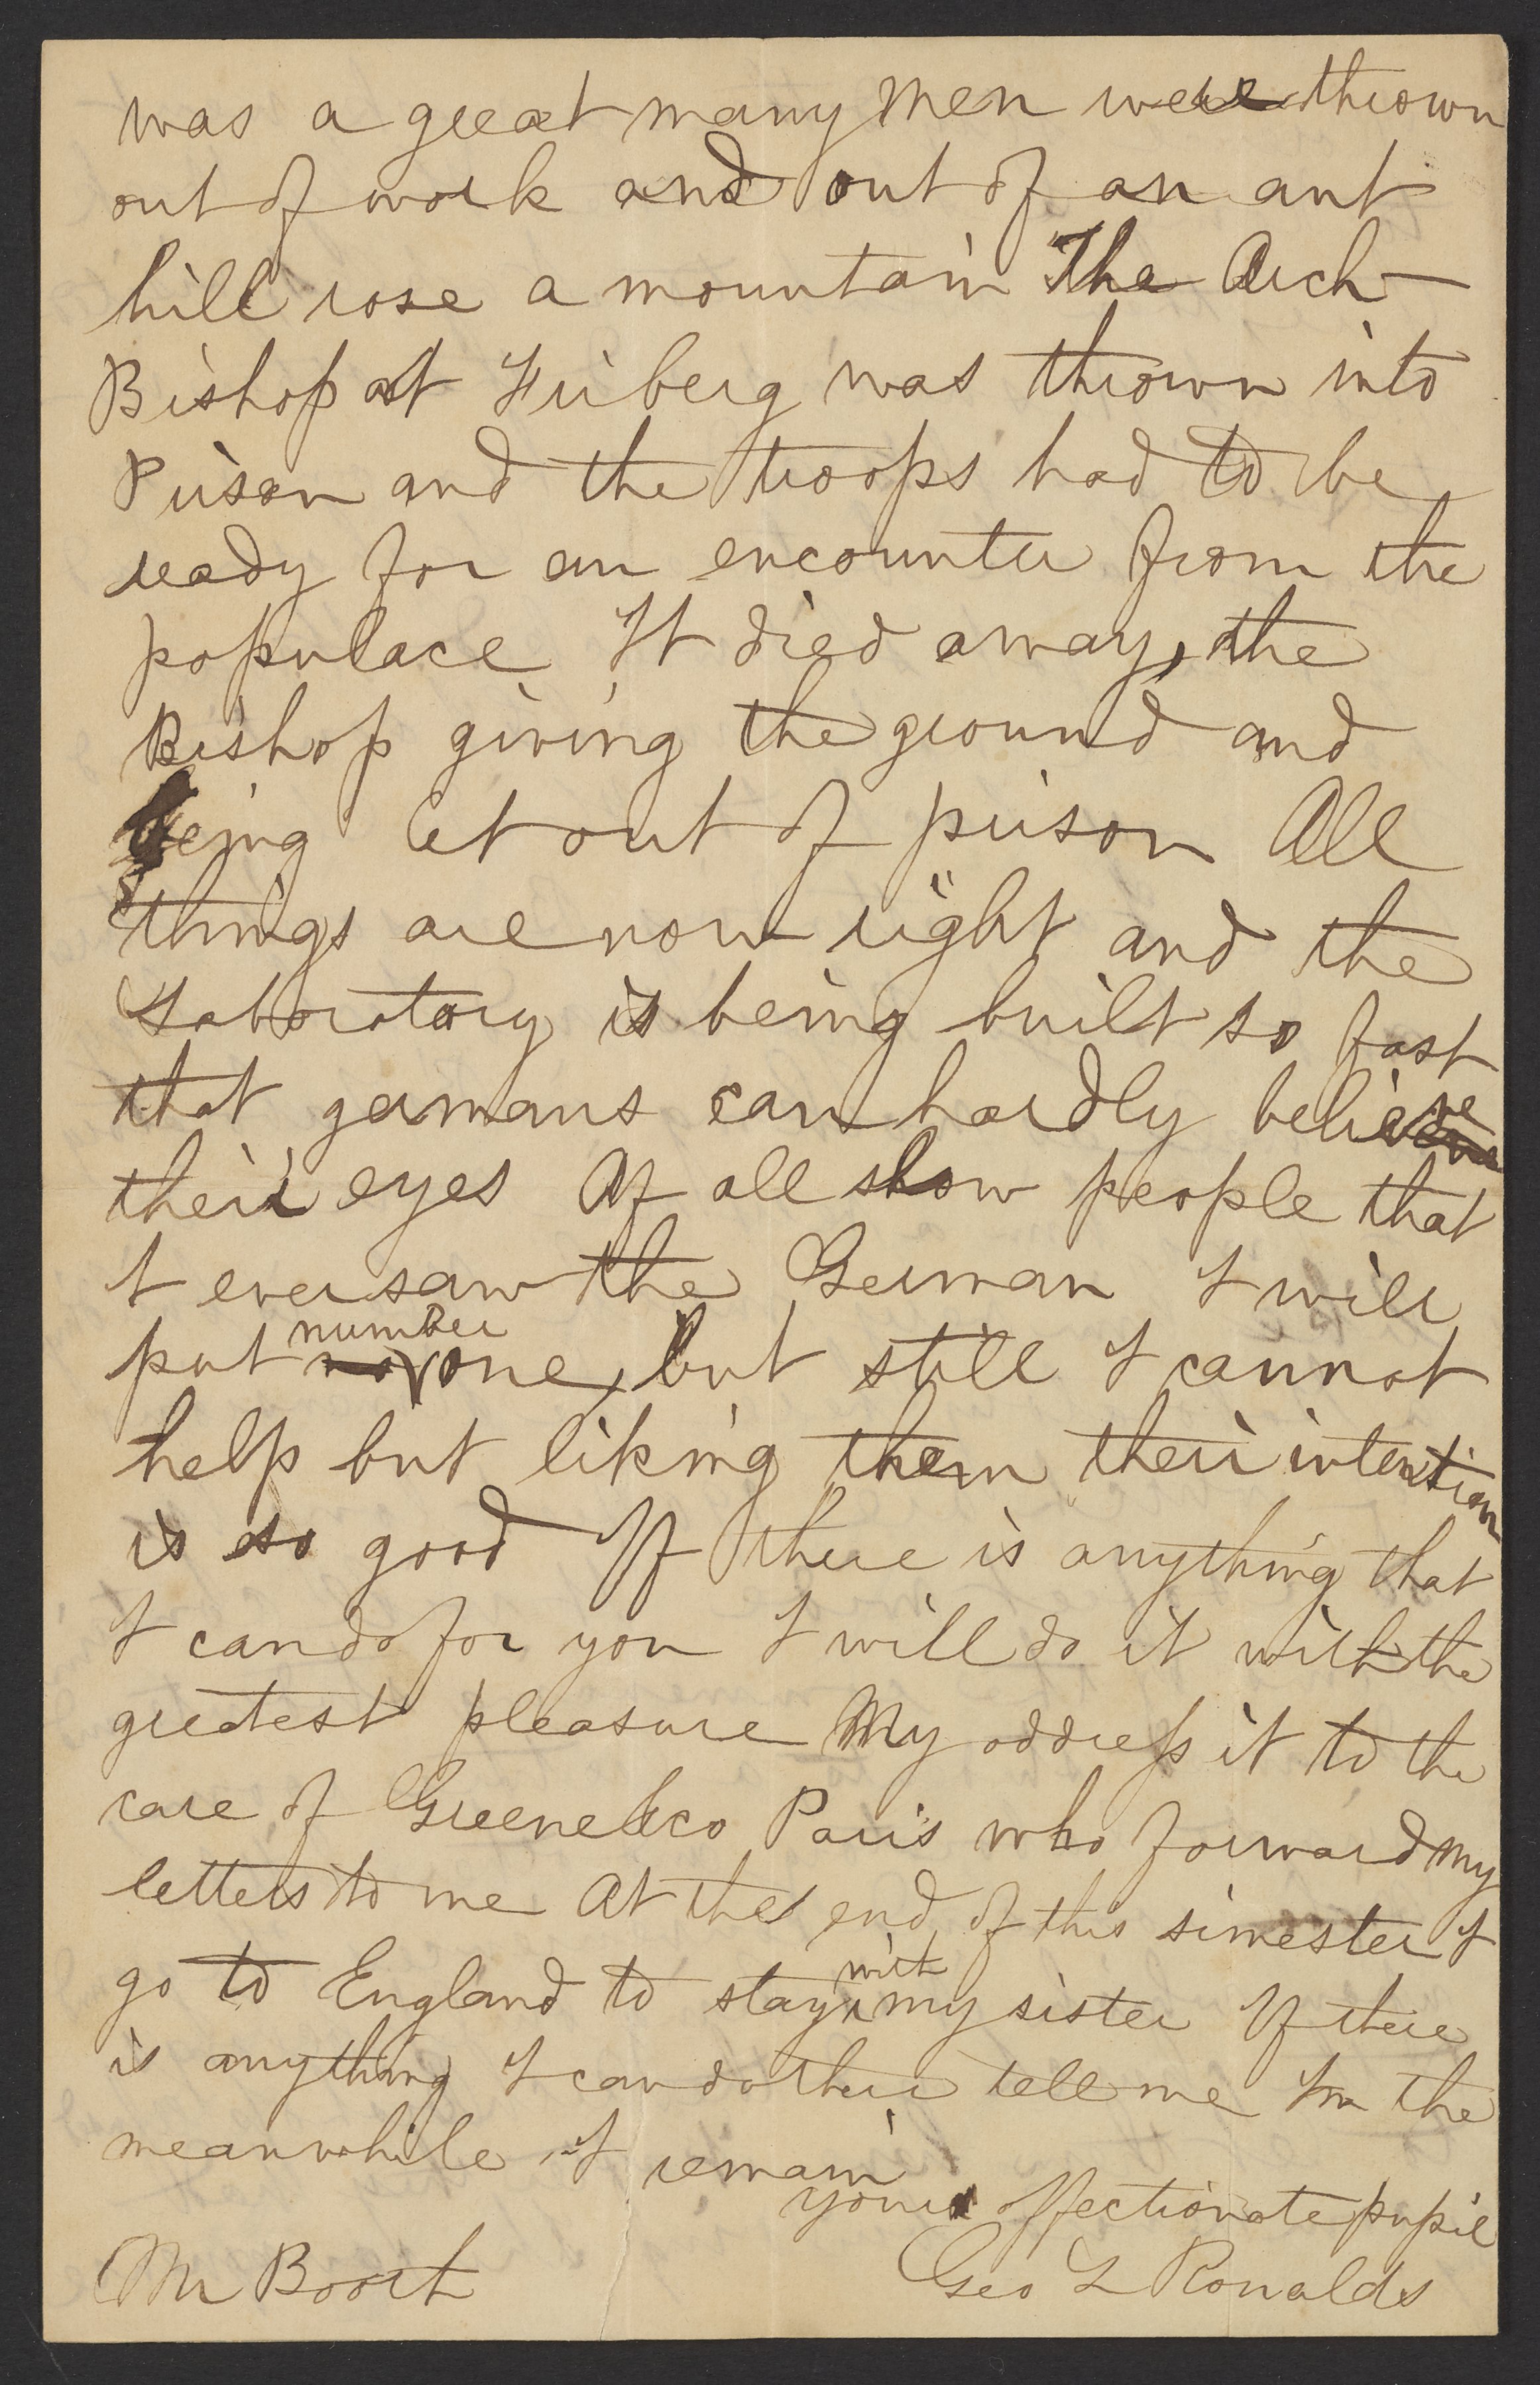 was a great many men were thrown
out of work and out of an ant
hill rose a mountain The Arch-
Bishop at Friberg was thrown into
Prison and the troops had to be
ready for an encounter from the
populace It died away, the
Bishop giving the ground and
being let out of prison All
things are now right and the
Laboratory is being built so fast
that germans can hardly believe
their eyes Of all slow people that
I ever saw the German I will
put number one, but still I cannot
help but liking them their intention
is so good If there is anything that
I can do for you I will do it with the
greatest pleasure My address it to the
care of Greene & co Paris who forward my
letters to me At the end of this simester I
go to England to stay with my sister If there
is anything I can do there tell me In the
meanwhile I remain
your affectionate pupil
Mr Booth Geo L Ronalds